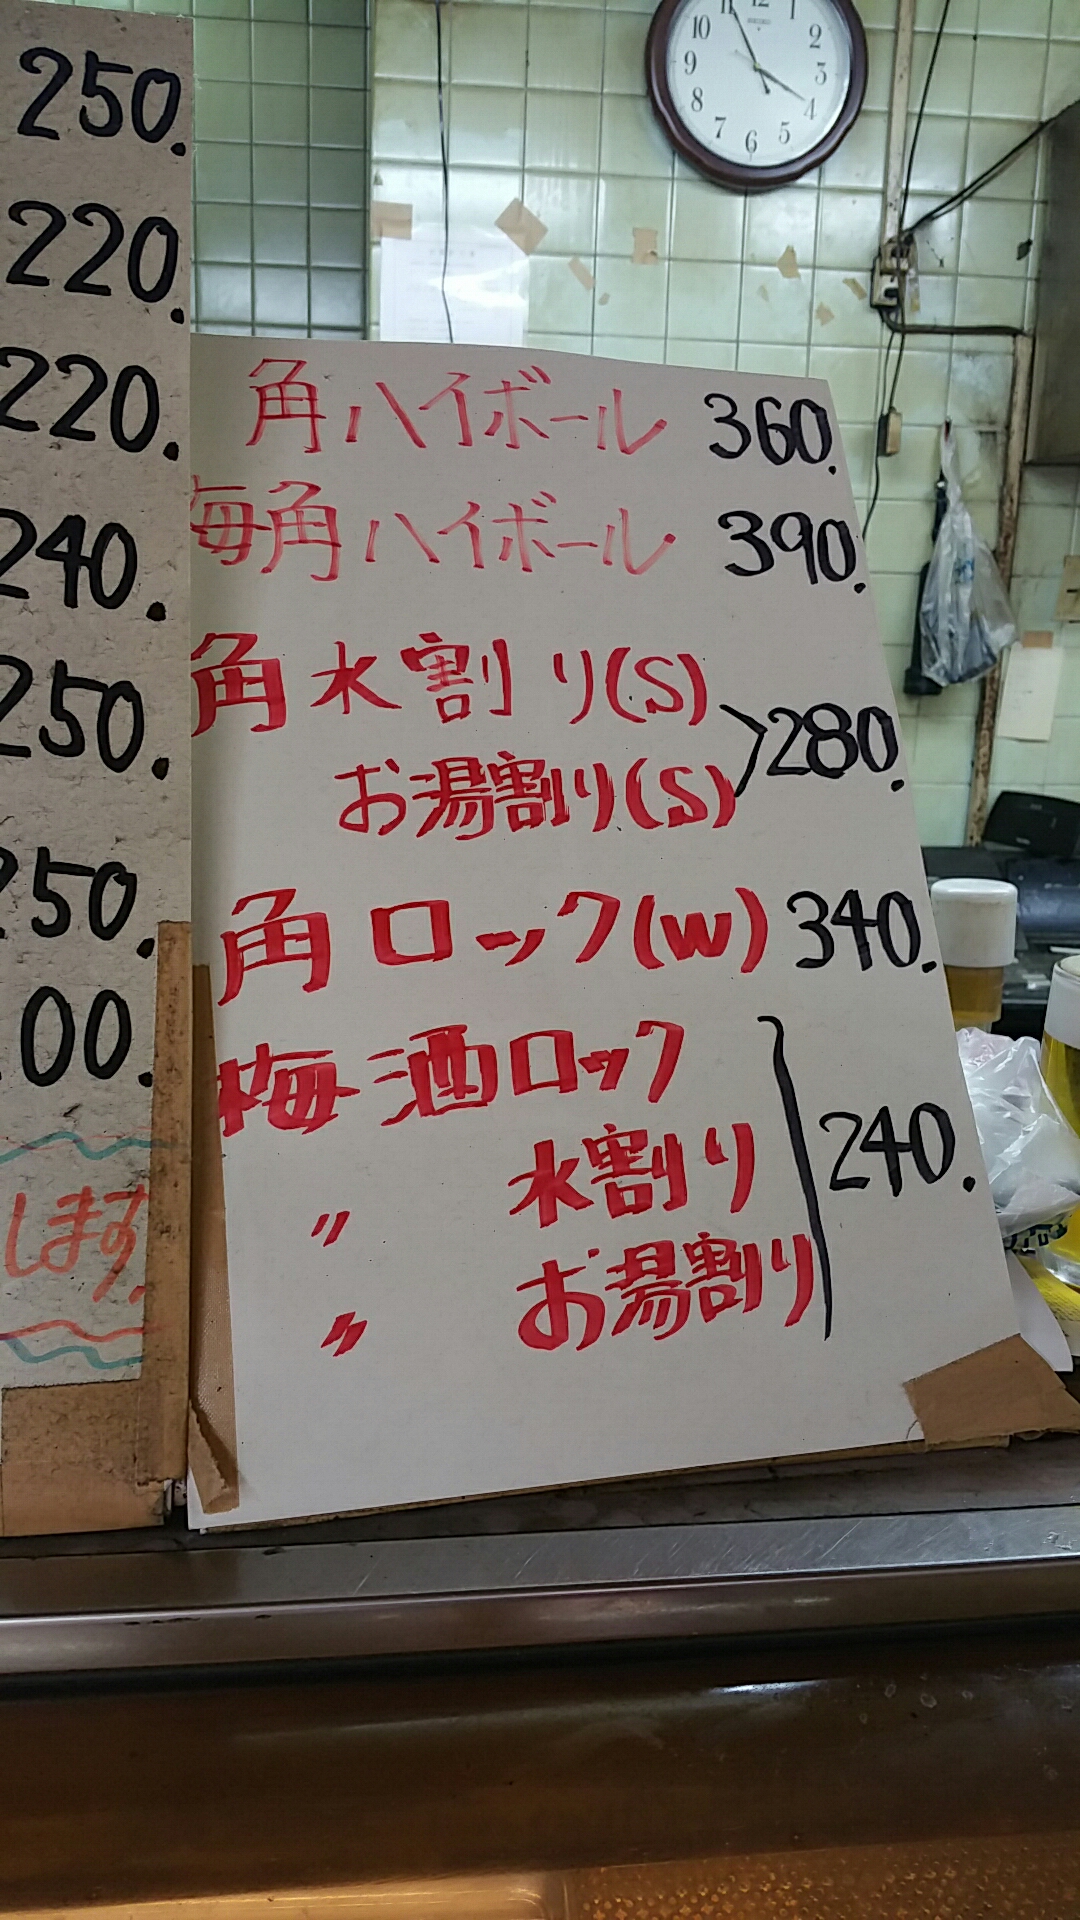 250.
220.
220.
240.
250.
250.
00.
します。
角ハイボール 360.
梅角ハイボール 390.
角水割り(S)
お湯割り(S)
280.
角ロック(W) 340.
梅酒ロック
〃 水割り
〃 お湯割り
240.
10 11 12 1 2 3 4 5 6 7 8 9
SEIKO